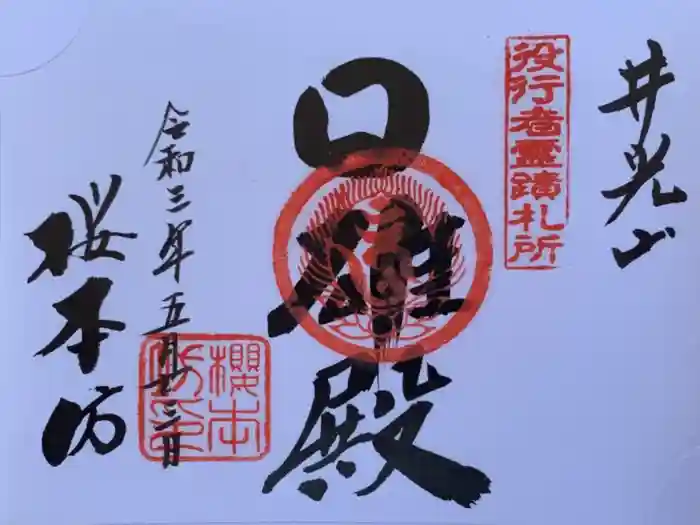 井光山
役行者霊蹟札所
日雄殿
令和三年五月十三日
櫻本坊印
桜本坊